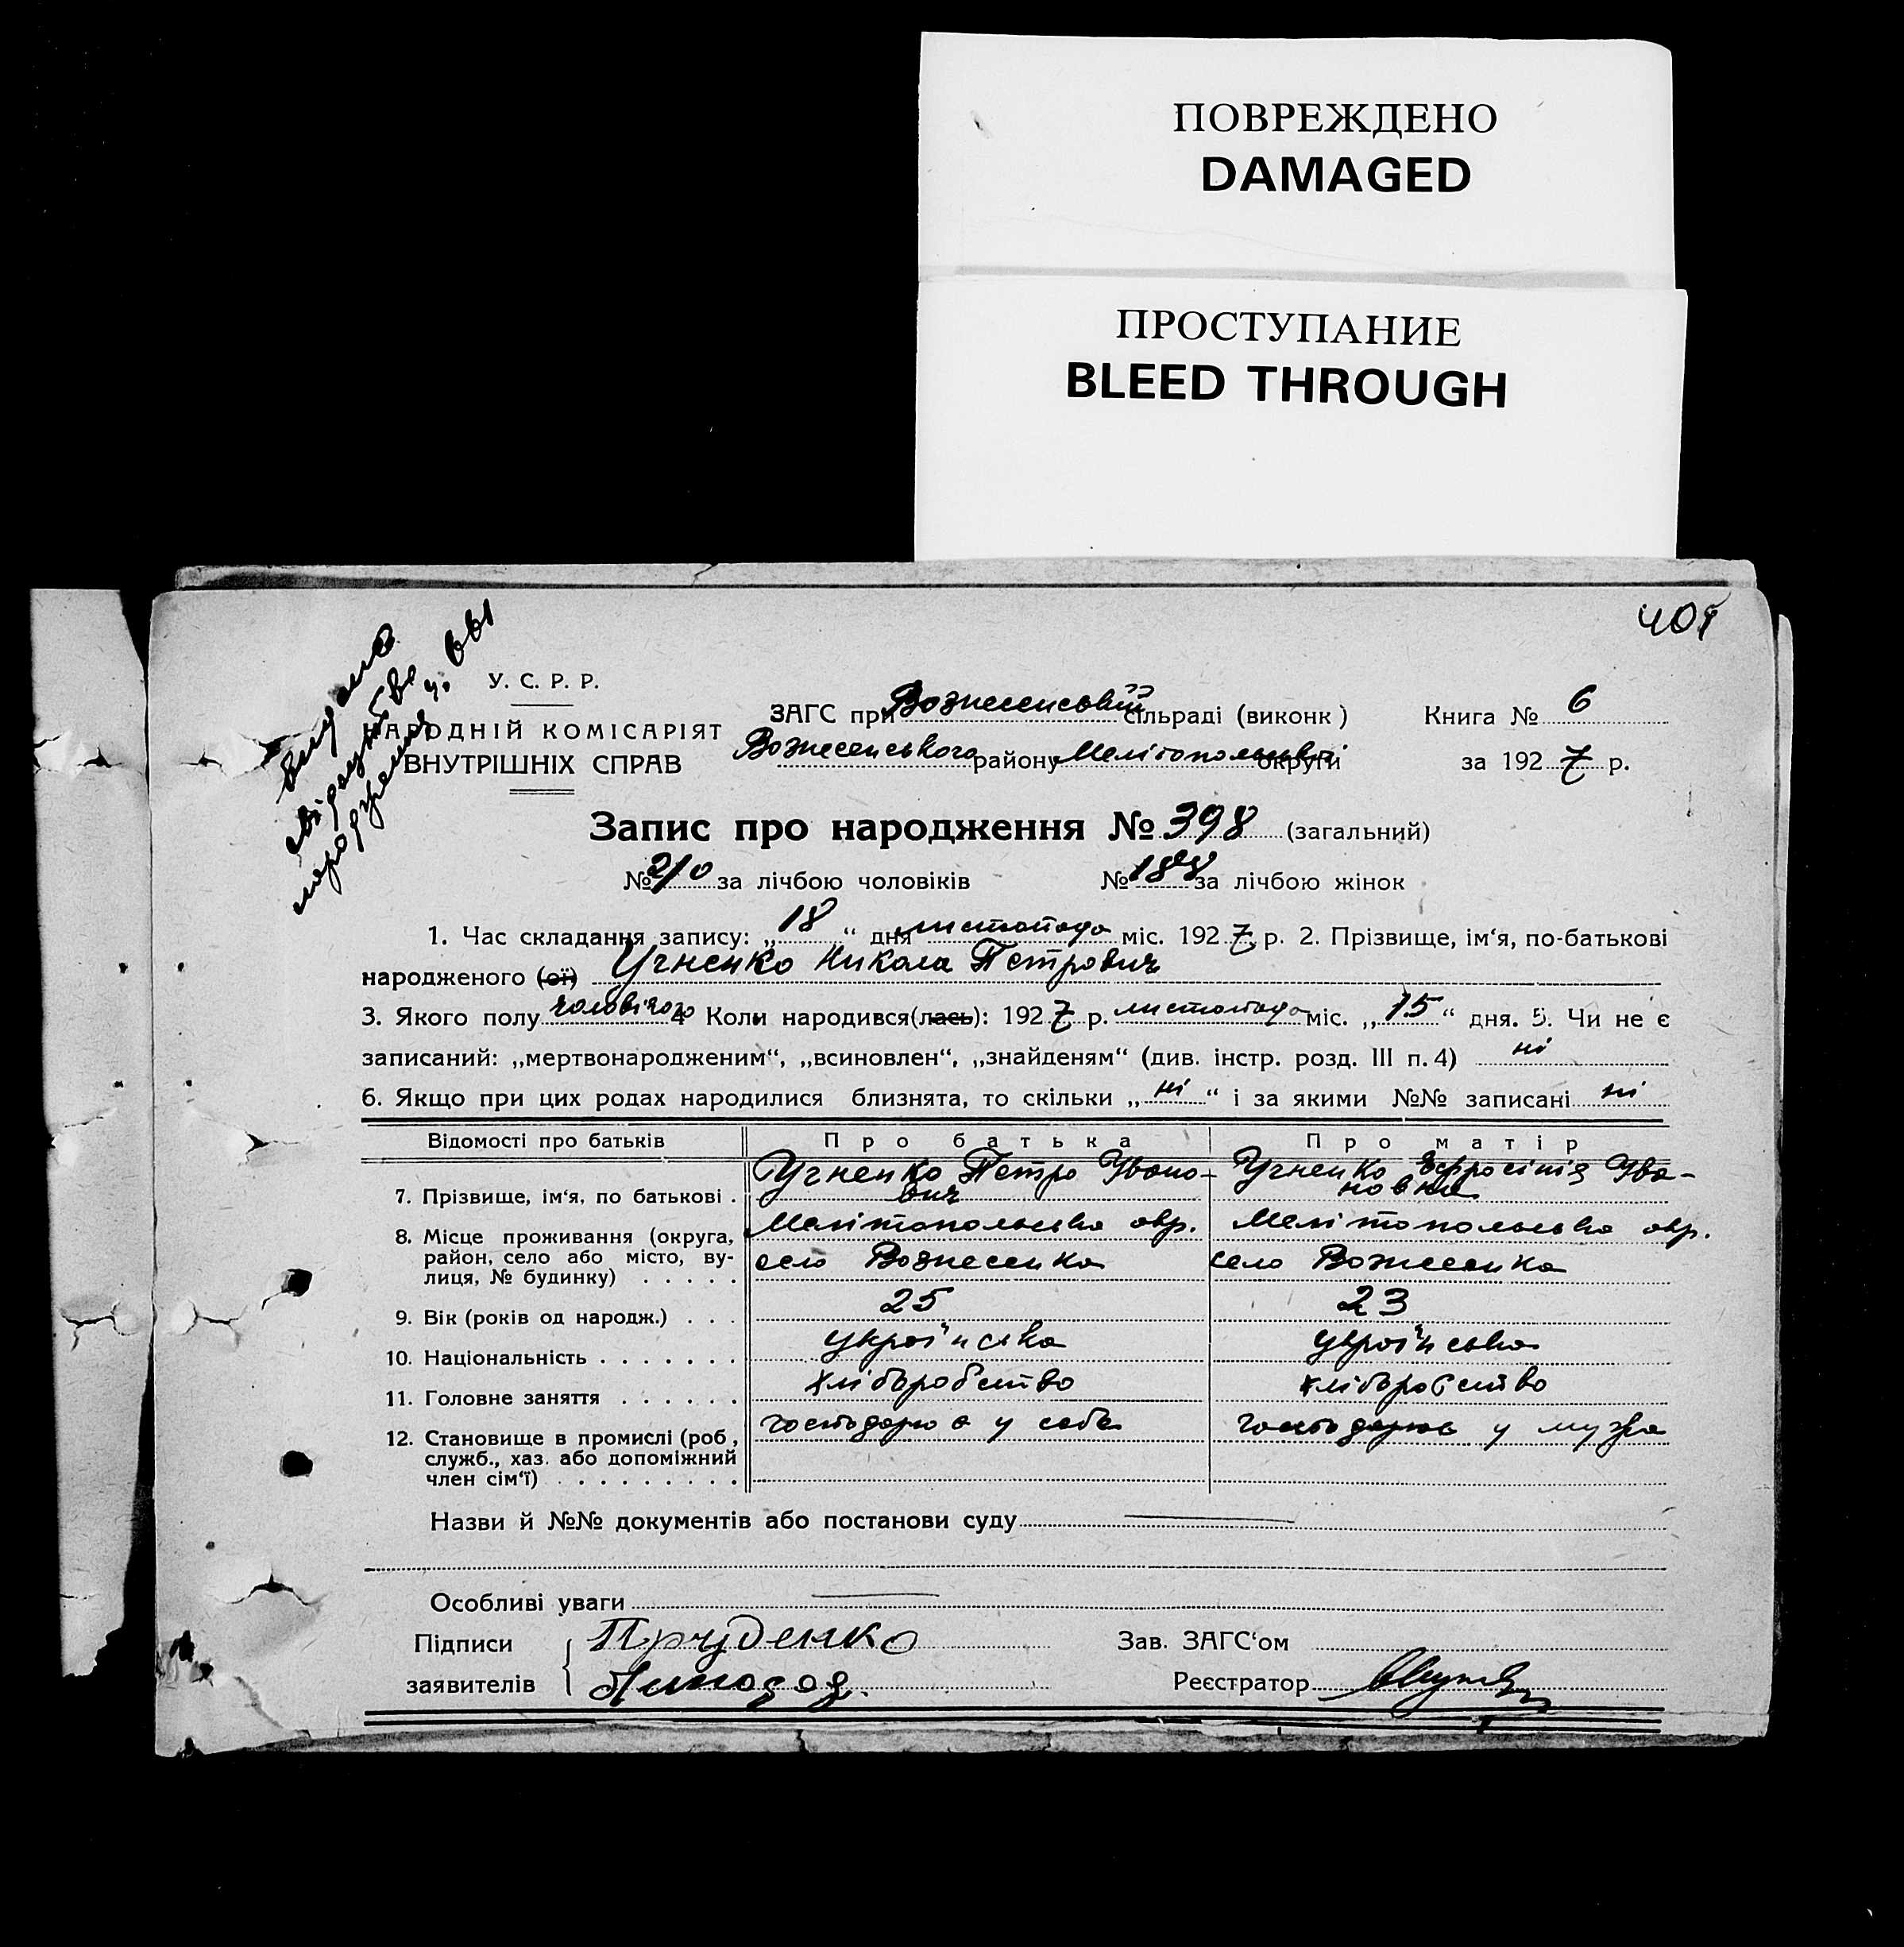 ПОВРЕЖДЕНО
DAMAGED
ПРОСТУПАНИЕ
BLEED THROUGH
видано
свідоцтво
народження
У. С. Р. Р.
НАРОДНІЙ КОМІСАРІЯТ
ВНУТРІШНІХ СПРАВ
ЗАГС при Вознесенській сільраді (виконк)
Книга № 6
Вознесенського району Мелітопольської округи
за 1927 р.
Запис про народження № 398 (загальний)
№ 210 за лічбою чоловіків № 188 за лічбою жінок
1. Час складання запису: „18“ дня листопада міс. 1927 р. 2. Прізвище, ім‘я, по-батькові
народженого (ої) Учненко Никола Петрович
3. Якого полу чоловічого 4 Коли народився(лась): 1927 р. листопада міс. „15“ дня. 5. Чи не є
записаний: „мертвонародженим“, „всиновлен“, „знайденям“ (див. інстр. розд. III п. 4) ні
6. Якщо при цих родах народилися близнята, то скільки „ні“ і за якими №№ записані ні
Відомості про батьків Про батька Про матір
7. Прізвище, ім‘я, по батькові . Учненко Петро Ивано-
вич
Учненко Ефросінія Ива-
новна
8. Місце проживання (округа,
район, село або місто, ву-
лиця, № будинку) . . . . .
Мелітопольська окр.
село Вознесенка
Мелітопольська окр.
село Вознесенка
9. Вік (років од народж.) . . . 25 23
10. Національність . . . . . . . українська українська
11. Головне заняття . . . . . . хліборобство хліборобство
12. Становище в промислі (роб,
служб., хаз. або допоміжний
член сім‘ї) . . . . . . . . .
господарює у себе
господарює у мужа
Назви й №№ документів або постанови суду
Особливі уваги
Підписи
заявителів
Пруденко
Зав. ЗАГС‘ом
Реєстратор